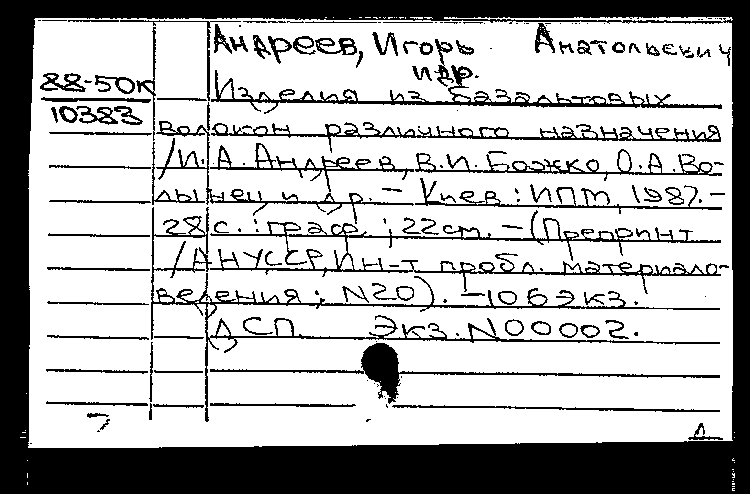 Андреев, Игорь Анатольевич
и др.
88-50к
Изделия из базальтовых
10383
волокон различного назначения
/И. А. Андреев, В. И. Божко, О. А. Во-
лынец и др. - Киев : ИПМ, 1987. -
28 с. : граф. ; 22 см. - (Препринт
/АН УССР, Ин-т пробл. материало-
ведения ; N20). - 106 экз.
ДСП. Экз. N00002.